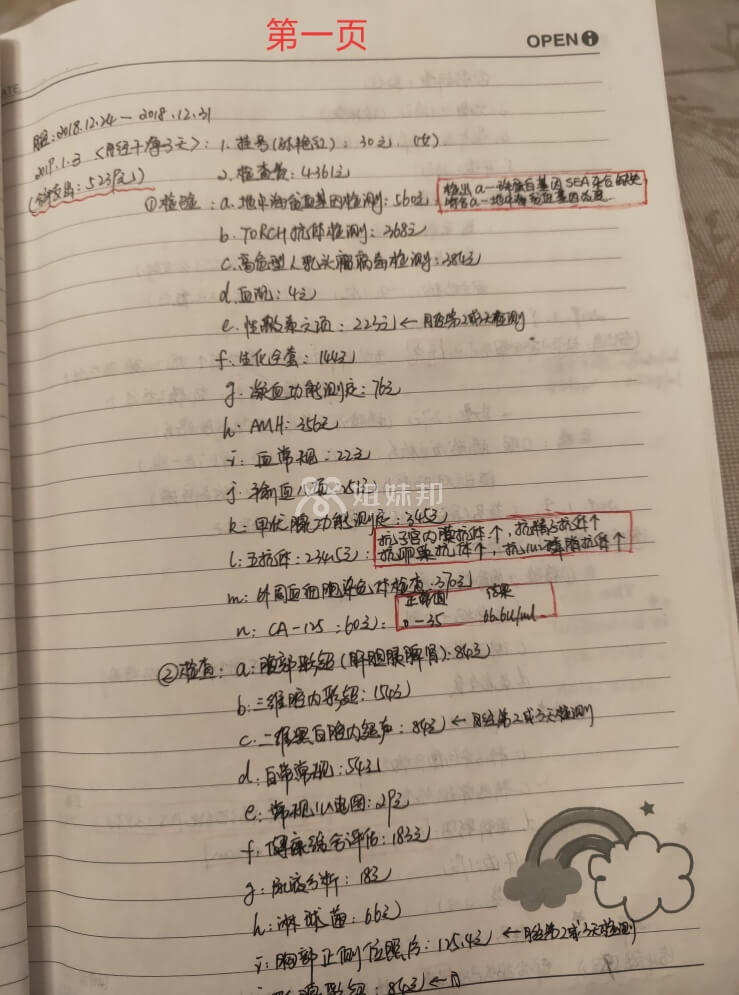 第一页
OPEN i
月经:2018.12.24—2018.12.31
2019.1.3 (月经干净3天): 1.挂号(孙艳红): 30元 (女)
2.检查费:4361元
①检验: a.地中海贫血基因检测:560元
检出α-珠蛋白基因SEA杂合缺失
符合α-地中海贫血基因改变
b.TORCH抗体检测:368元
c.高危型人乳头瘤病毒检测:384元
d.血沉:4元
e.性激素六项:225元←月经第2或3天检测
f.生化全套:144元
g.凝血功能测定:76元
h.AMH:356元
i.血常规:22元
j.输血八项:251元
姐妹邦
k:甲状腺功能测定:345元
l:五抗体:234.15元:
抗子宫内膜抗体↑,抗精子抗体↑
抗卵巢抗体↑,抗心磷脂抗体↑
m:外周血细胞染色体检查:370元
n:CA-125:60元:
正常值 结果
0-35 66.6U/ml
②检查: a:腹部彩超(肝胆胰脾肾):84元
b:三维腔内彩超:154元
c.二维黑白腔内超声:84元←月经第2或3天检测
d:白带常规:54元
e:常规心电图:29元
f.健康综合评估:183元
g:尿液分析:18元
h:淋球菌:66元
i:胸部正侧位照片:125.4元←月经第2或3天检测
彩超:84元←月